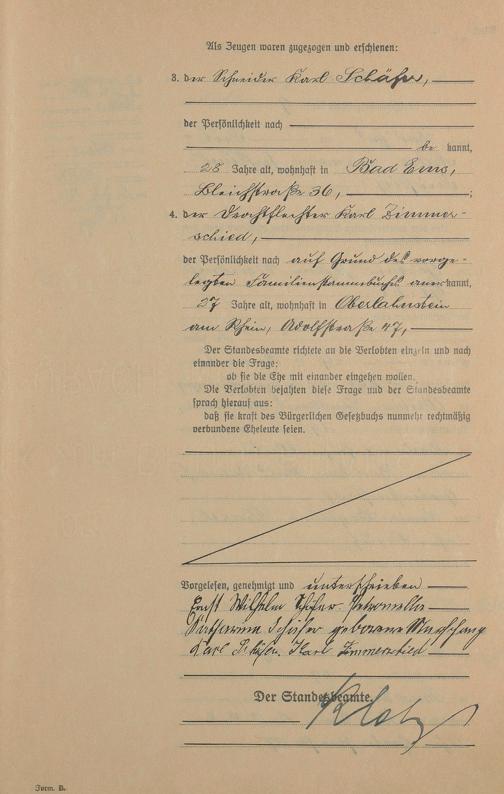 Als Zeugen waren zugezogen und erschienen:
3. der Schneider Karl Schäfer,
der Persönlichkeit nach
be kannt,
28 Jahre alt, wohnhaft in Bad Ems,
Bleichstraße 36, ;
4. der Drahtflechter Karl Zimmer-
schied,
der Persönlichkeit nach auf Grund des vorge-
legten Familienstammbuchs anerkannt,
27 Jahre alt, wohnhaft in Oberlahnstein
am Rhein, Adolfstraße 47,
Der Standesbeamte richtete an die Verlobten einzeln und nach
einander die Frage:
ob sie die Ehe mit einander eingehen wollen.
Die Verlobten bejahten diese Frage und der Standesbeamte
sprach hierauf aus:
daß sie kraft des Bürgerlichen Gesetzbuchs nunmehr rechtmäßig
verbundene Eheleute seien.
Vorgelesen, genehmigt und unterschrieben
Ernst Wilhelm Schäfer Petronella
Katharina Schäfer geborene
Karl Schäfer. Karl Zimmerschied
Der Standesbeamte.
Form. B.